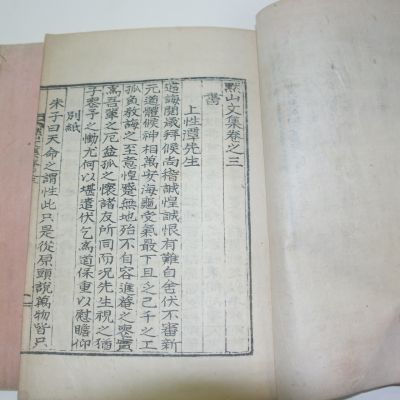 黙山文集卷之三
書
上性潭先生
造誨閱歲拜候尙稽誠惶誠恨有難自舍伏不審新
元道體候神相萬安海龜受氣最下且之己千之工
孤負敎誨之至意惶蹙無地殆不自容進菴之喪實
爲吾輩之厄益孤之懷諸友所同而况先生視之猶
子喪予之慟尤何以堪遣伏乞爲道保重以慰瞻仰
別紙
朱子曰天命之謂性此只是從原頭說萬物皆只